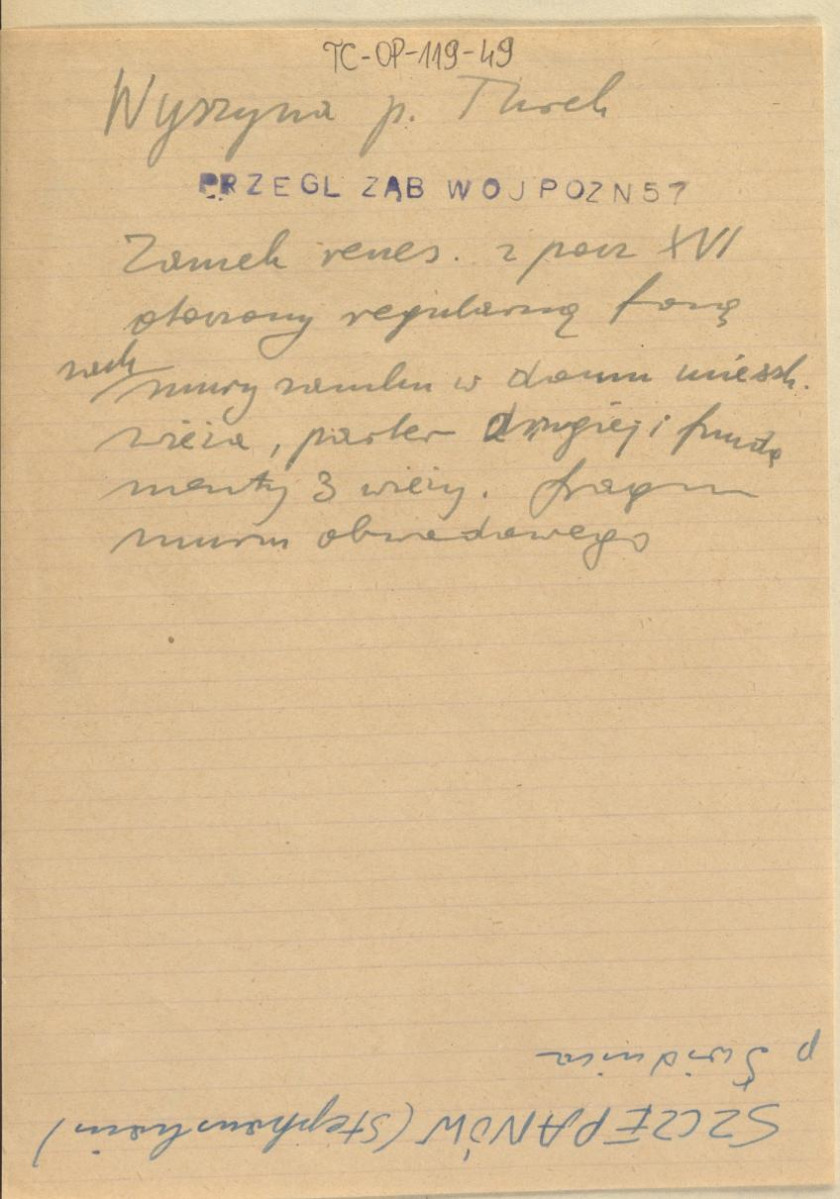 TC-OP-119-49
Wyszyna p. Turek
PRZEGL ZAB WOJ POZN 57
Zamek renes. z pocz XVI
otoczony regularną fosą
zach
mury zamku w domu mieszk.
wieża, parter drugiej i funda
menty 3 wieży. fragm
muru obwodowego
SZCZEPANÓW (Stephanshain)
p Świdnica